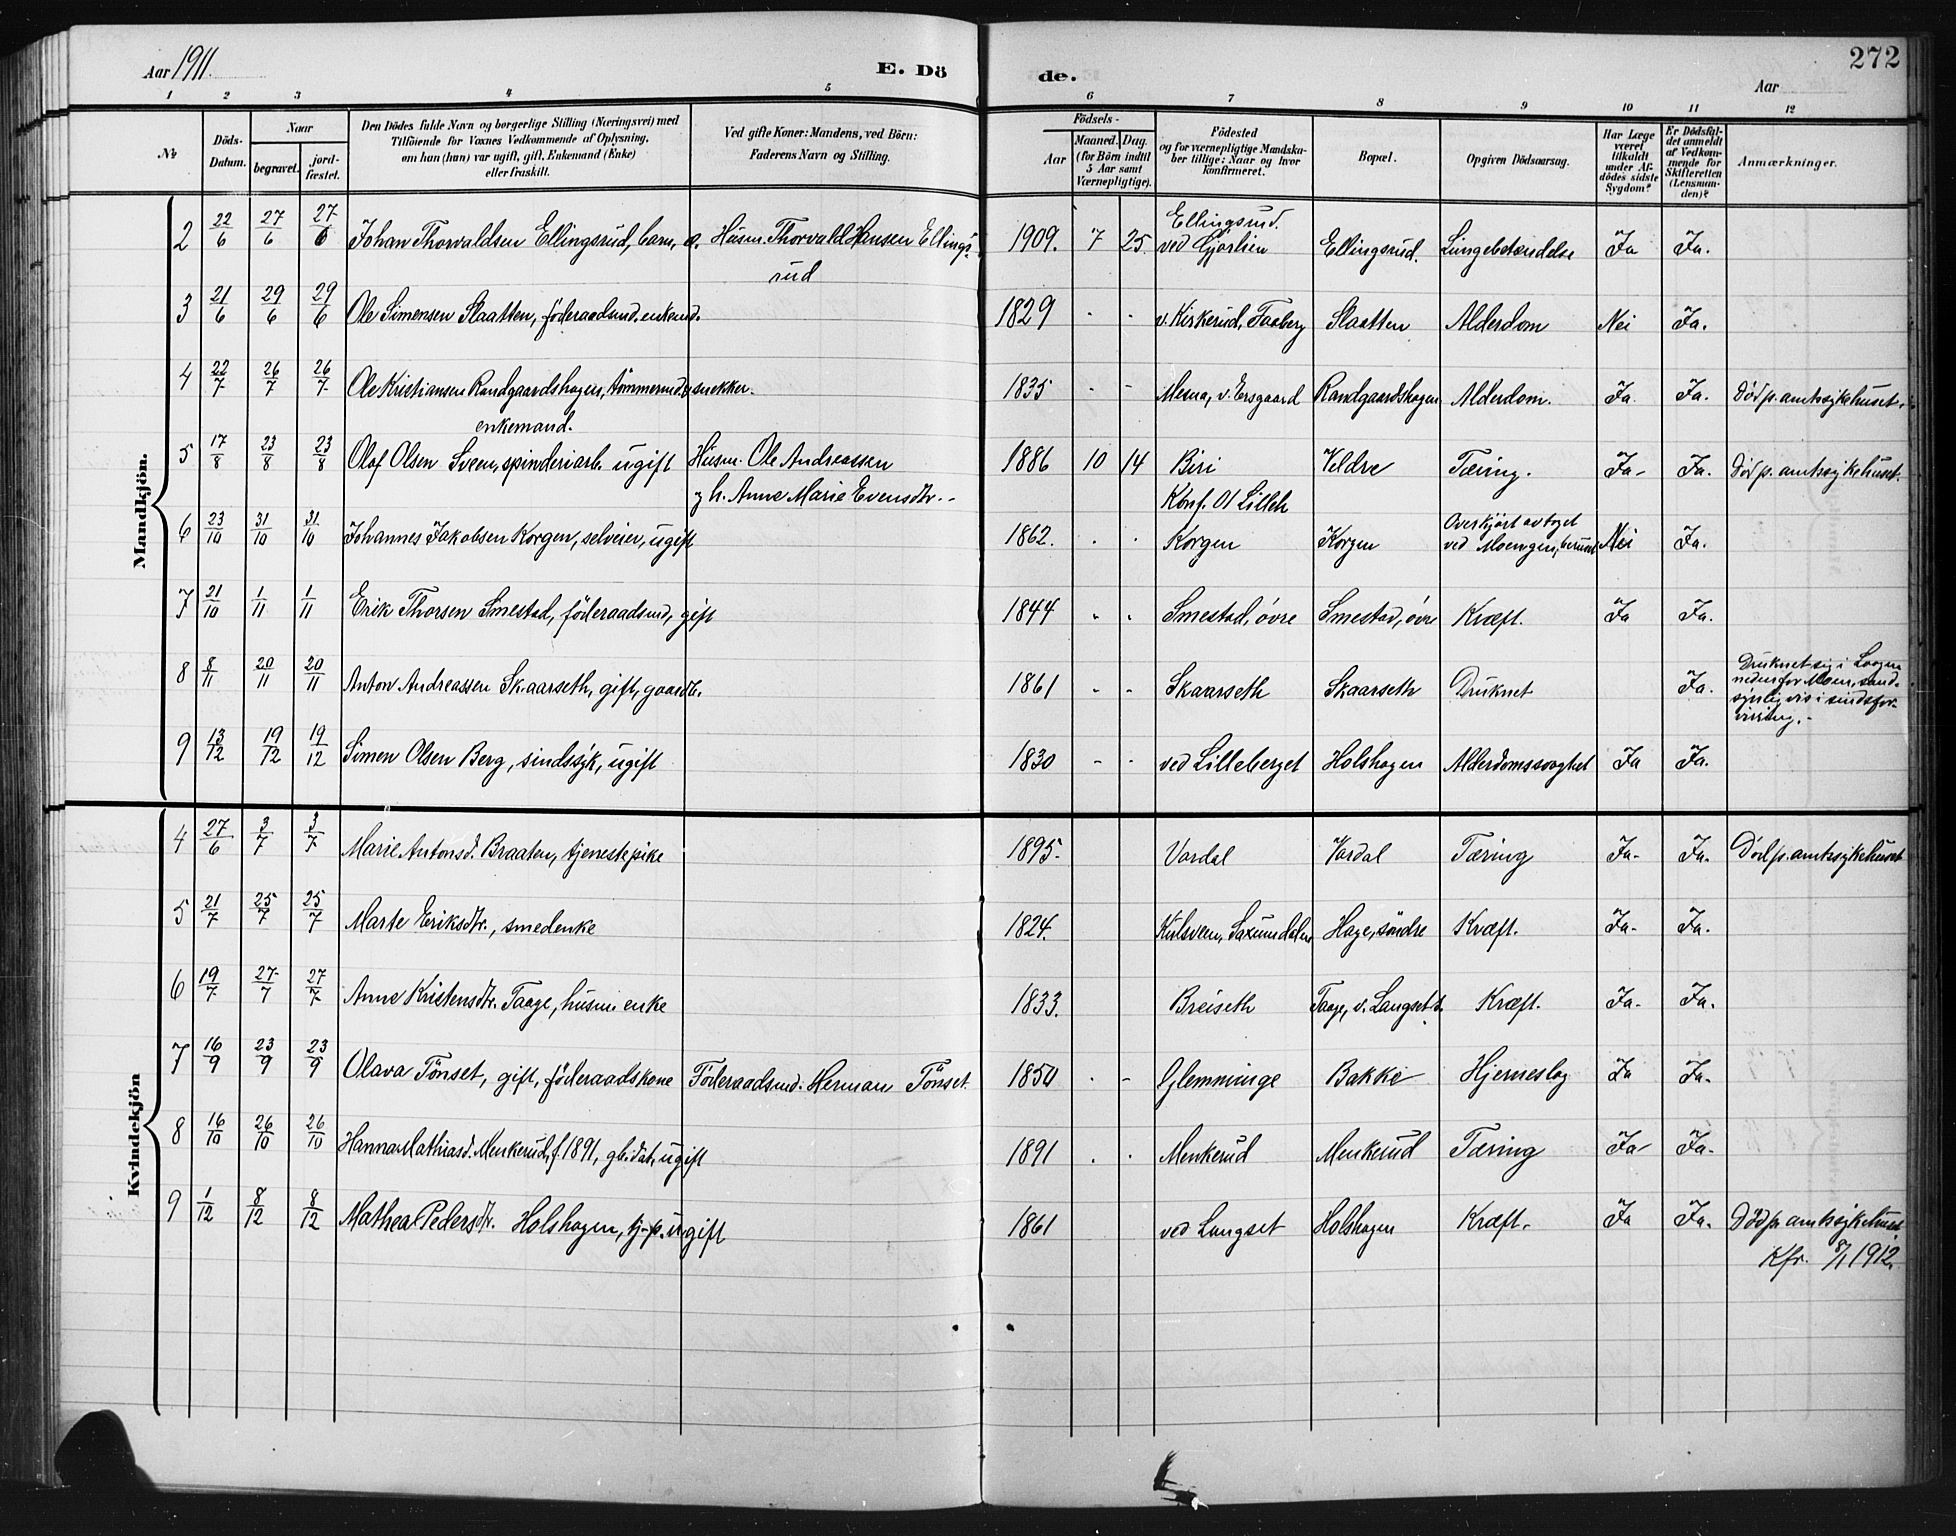 Aar 1911.
E. Dö
de.
Aar
272
1 2 3 4 5 6 7 8 9 10 11 12
№
Döds-Datum.
Naar
begravet.
jord-fæstet.
Den Dödes fulde Navn og borgerlige Stilling (Næringsvei) med
Tilföiende for Voxnes Vedkommende af Oplysning,
om han (hun) var ugift, gift, Enkemand (Enke)
eller fraskilt.
Ved gifte Koner: Mandens, ved Börn:
Faderens Navn og Stilling.
Födsels-
Aar
Maaned. Dag.
(for Börn indtil
5 Aar samt
Værnepligtige).
Födested
og for værnepligtige Mandska-
ber tillige: Naar og hvor
konfirmeret.
Bopæl.
Opgiven Dödsaarsag.
Har Læge
været
tilkaldt
under Af-
dödes sidste
Sygdom?
Er Dödsfal-
det anmeldt
af Vedkom-
mende for
Skifteretten
(Lensman-
den)?
Anmærkninger.
Mandkjön.
2 22/6 27/6 27/6 Johan Thorvaldsen Ellingsrud, barn, Husm. Thorvald Hansen Ellings- 1909. 7 25. Ellingsrud. Ellingsrud. Lungebetændelse Ja Ja.
rud ved Gjørlien
3 21/6 29/6 29/6 Ole Simensen Slaatten, föderaadsmd. enkemd. 1829 - - v. Kirkerud, Faaberg Slaatten Alderdom Nei Ja.
4 22/7 26/7 26/7 Ole Kristiansen Randgaardshagen, tömmermd. & snekker. 1835 - - Mesna, v. Ersgaard Randgaardshagen Alderdom. Ja. Ja. Död p. amtssykehuset.
enkemand.
5 17/8 23/8 23/8 Olaf Olsen Sveen, spinderiarb. ugift Husm. Ole Andreassen 1886 10 14 Biri Veldre Tæring. Ja- Ja. Död p. amtssykehuset.
g h. Anne Marie Evensdtr. - Konf. 01 Lilleh
6 23/10 31/10 31/10 Johannes Jakobsen Korgen, selveier, ugift 1862. . . Korgen Korgen Overkjört av toget Nei Ja.
ved Moengen, beruset
7 21/10 1/11 1/11 Erik Thorsen Smestad, föderaadsmd, gift 1844 - . Smestad, övre Smestad, övre Kræft. Ja Ja.
8 8/11 20/11 20/11 Anton Andreassen Skaarseth, gift, gaardb. 1861 - - Skaarseth Skaarseth Druknet Ja. Druknet sig i Laagen
nedenfor Moen, sand-
synligvis i sindsfor-
virring. -
9 13/12 19/12 19/12 Simen Olsen Berg, sindssyk, ugift 1830 - - ved Lilleberget Holshagen Alderdomssvaghet Ja Ja.
Kvindekjön
4 27/6 3/7 3/7 Marie Antonsd. Braaten, tjenestepike 1895. Vardal Vardal Tæring Ja- Ja. Död p. amtssykehuset
5 21/7 25/7 25/7 Marte Eriksdtr., smedenke 1824. Kulsveen, Saxumdalen Hage, söndre Kræft. Ja- Ja.
6 19/7 27/7 27/7 Anne Kristensdtr. Taage, husm. enke 1833. Breiseth Taage, v. Langseth. Kræft. Ja- Ja.
7 16/9 23/9 23/9 Olava Tönset, gift, föderaadskone Föderaadsmd. Herman Tönset 1850 . - Glemminge Bakke Hjerneslag Ja Ja-
8 16/10 26/10 26/10 Hanna Mathiasd. Menkerud, f. 1891, gb. dat., ugift 1891 . . Menkerud Menkerud Tæring Ja- Ja-
9 1/12 8/12 8/12 Mathea Pedersdtr. Holshagen, tj.-p. ugift 1861 ved Langset Holshagen Kræft. Ja Ja. Död p. amtssykehuset.
Kfr. 8/1 1912.